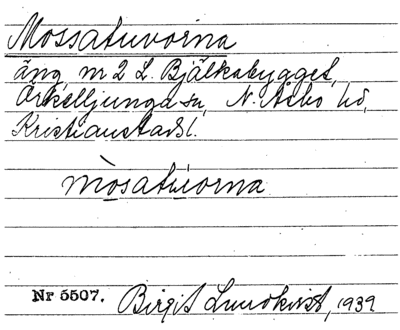 Mossatuvorna
äng, nr 2 L. Bjälkabygget,
Örkelljunga sn, N. Åsbo hd,
Kristianstads l.
mòsatúorna
Nr 5507. Birgit Lundkvist, 1939